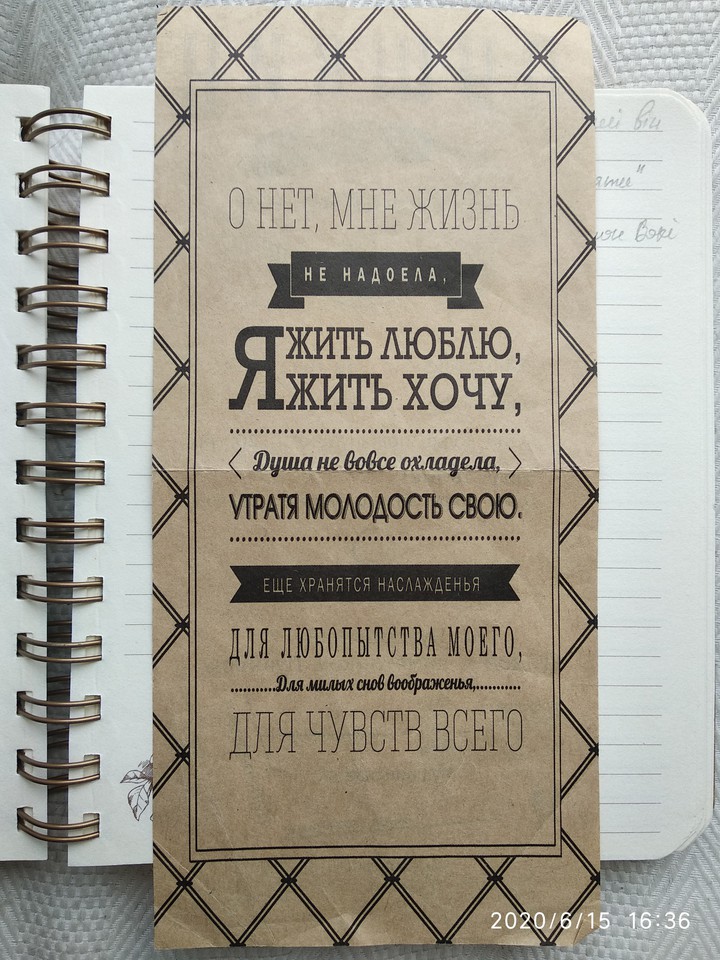 О НЕТ, МНЕ ЖИЗНЬ
НЕ НАДОЕЛА,
Я ЖИТЬ ЛЮБЛЮ,
ЖИТЬ ХОЧУ,
Душа не вовсе охладела,
УТРАТЯ МОЛОДОСТЬ СВОЮ.
ЕЩЕ ХРАНЯТСЯ НАСЛАЖДЕНЬЯ
ДЛЯ ЛЮБОПЫТСТВА МОЕГО,
Для милых снов воображенья,
ДЛЯ ЧУВСТВ ВСЕГО
він
2020/6/15 16:36